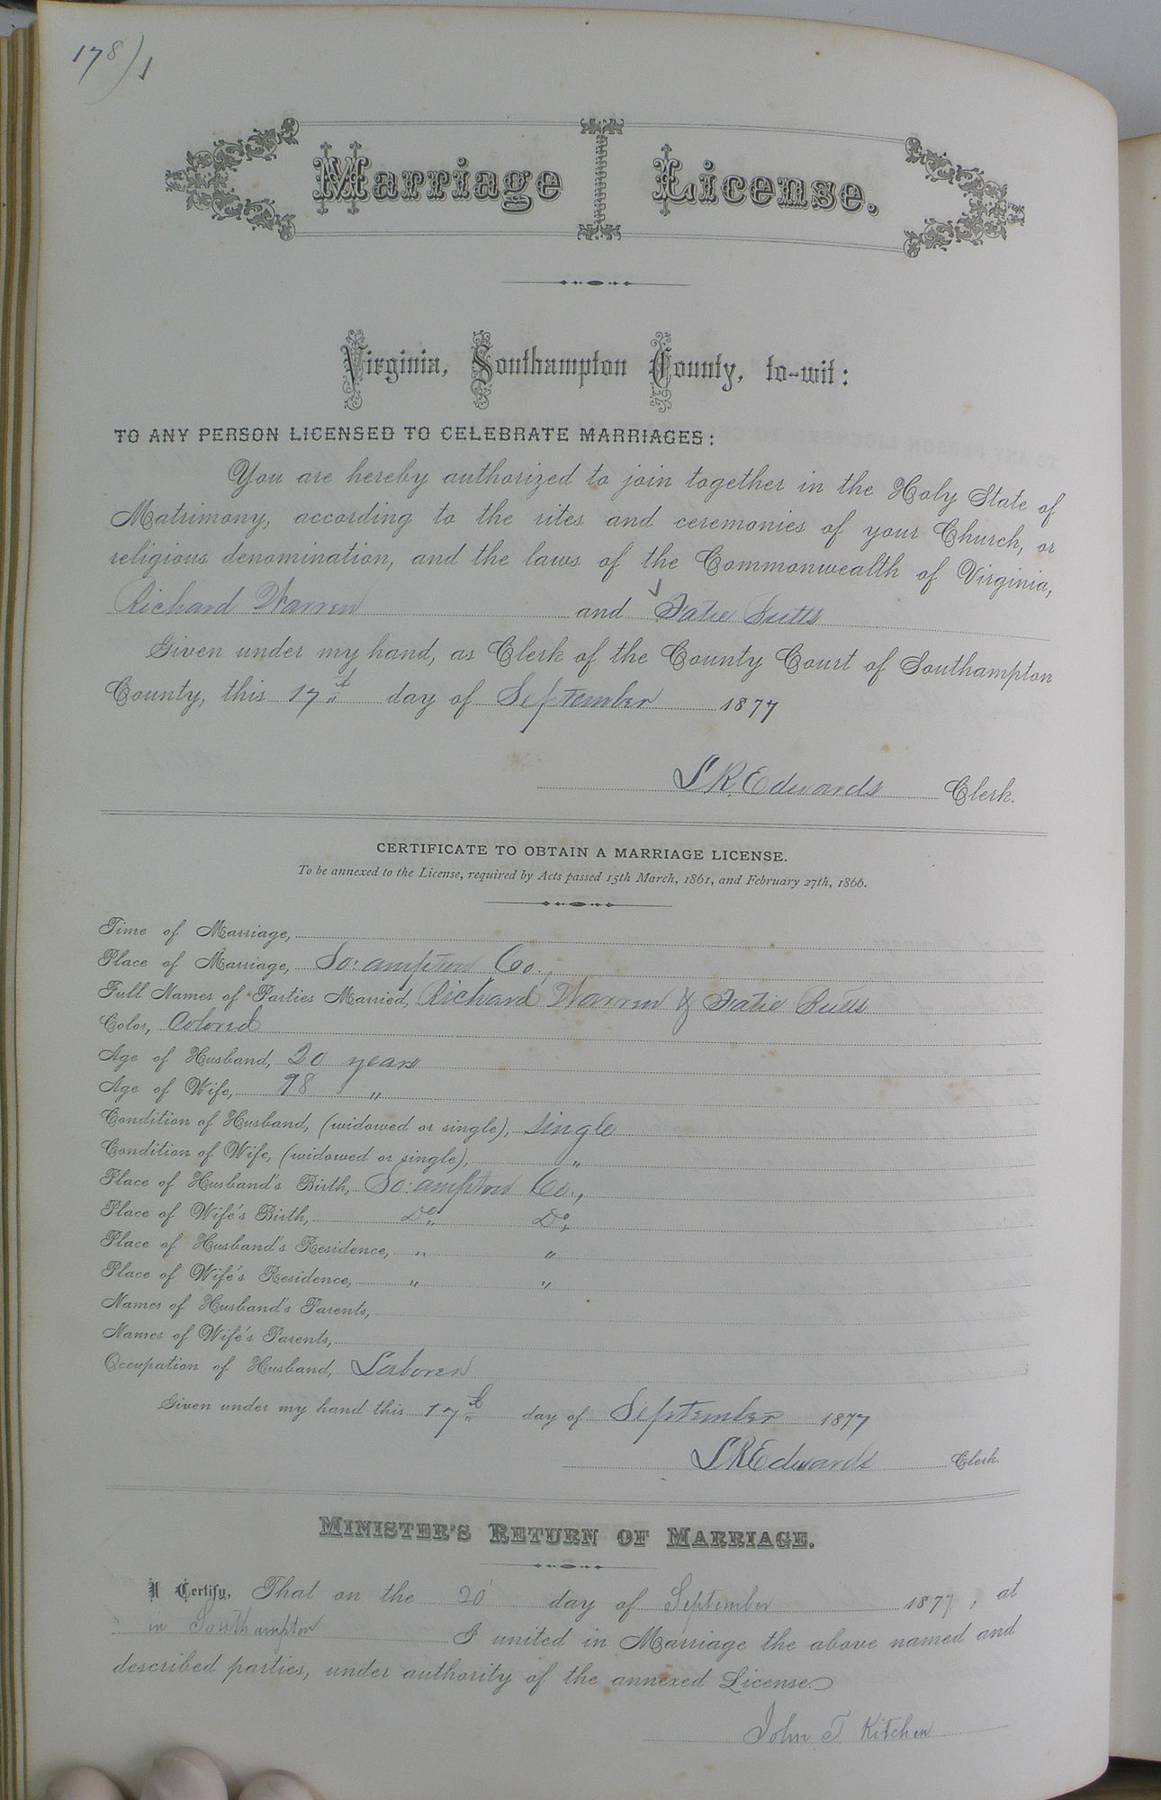 178) 1
Marriage License.
Virginia, Southampton County, to-wit:
TO ANY PERSON LICENSED TO CELEBRATE MARRIAGES:
You are hereby authorized to join together in the Holy State of
Matrimony, according to the rites and ceremonies of your Church, or
religious denomination, and the laws of the Commonwealth of Virginia,
Richard Warren and
Given under my hand, as Clerk of the County Court of Southampton
County, this 17th day of September 1877
L R. Edwards Clerk.
CERTIFICATE TO OBTAIN A MARRIAGE LICENSE.
To be annexed to the License, required by Acts passed 15th March, 1861, and February 27th, 1866.
Time of Marriage,
Place of Marriage, So:ampton Co.,
Full Names of Parties Married, Richard Warren &
Color, Colored
Age of Husband, 20 years
Age of Wife, 18 "
Condition of Husband, (widowed or single), single
Condition of Wife, (widowed or single), "
Place of Husband's Birth, So:ampton Co.,
Place of Wife's Birth, Do. Do.
Place of Husband's Residence, " "
Place of Wife's Residence, " "
Names of Husband's Parents,
Names of Wife's Parents,
Occupation of Husband, Laborer
Given under my hand this 17th day of September 1877
L R Edwards Clerk.
MINISTER'S RETURN OF MARRIAGE.
I Certify, That on the 20 day of September 1877, at
in Southampton I united in Marriage the above named and
described parties, under authority of the annexed License.
John T Kitchen